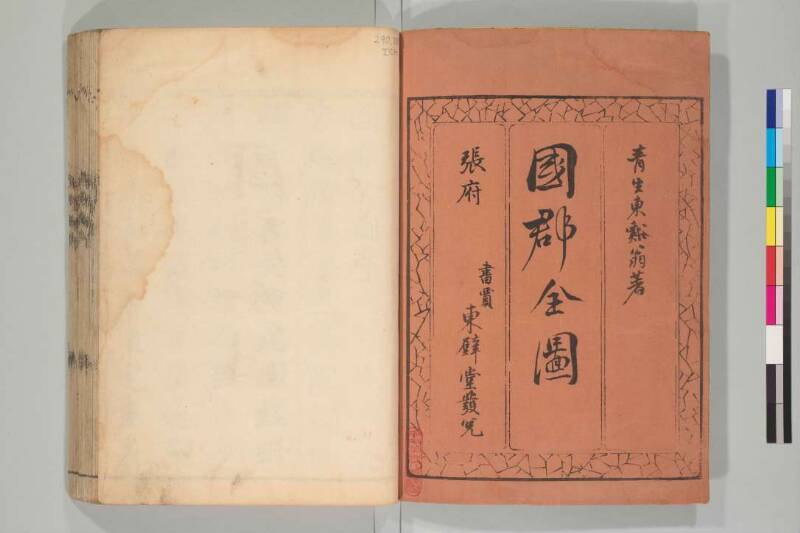 青生東谿翁著
國郡全圖
張府
書賈 東壁堂發兌